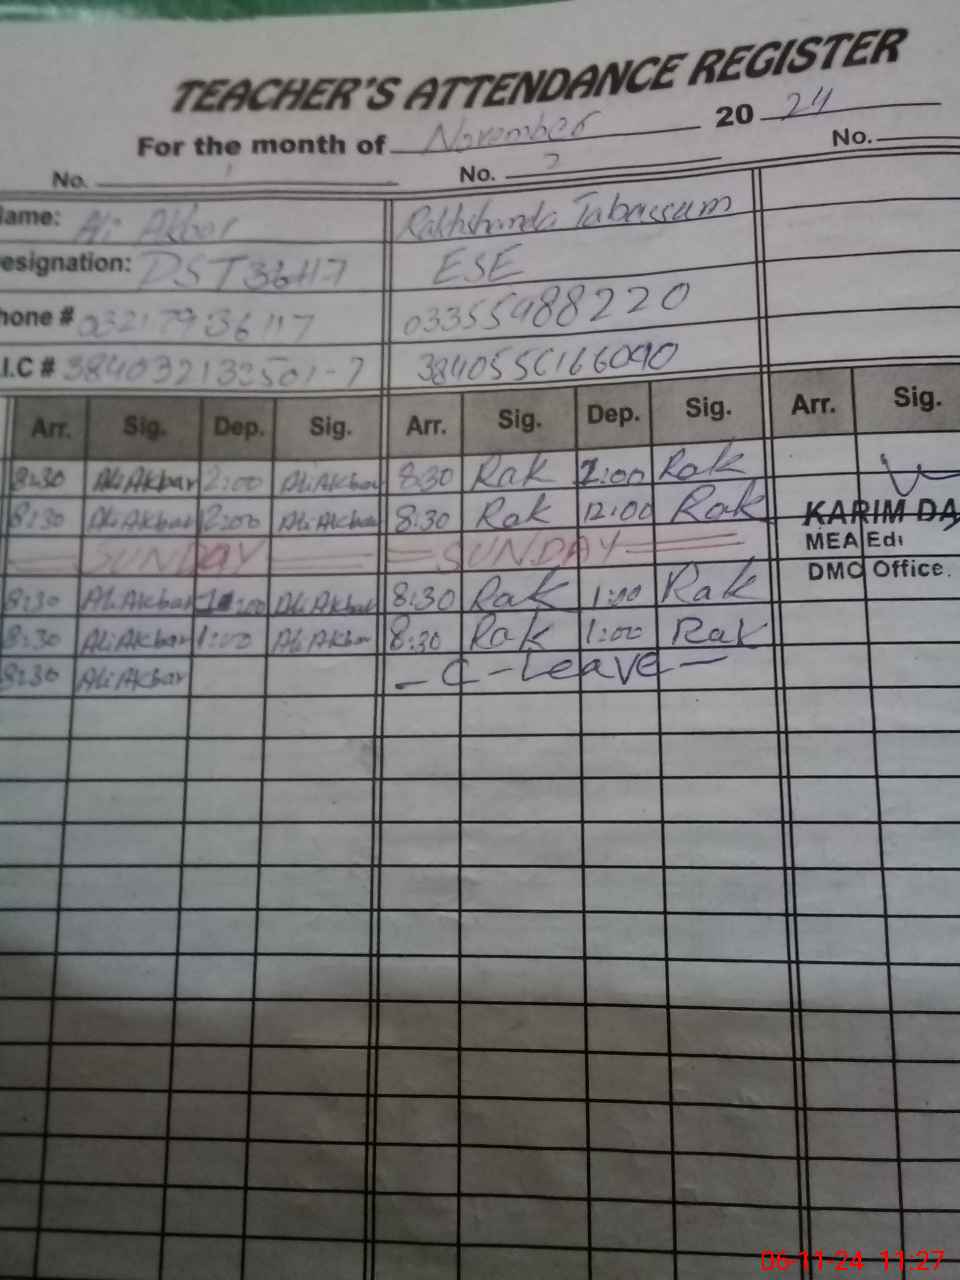 TEACHER'S ATTENDANCE REGISTER
For the month of November 2024
No. 1 No. 2 No.
ame: Ali Akbar Rakhshanda Tabassum
esignation: DST ESE
hone # 03217936117 03355488220
.I.C # 384032132501-7
Arr. Sig. Dep. Sig. Arr. Sig. Dep. Sig. Arr. Sig.
8:30 Ali Akbar 2:00 Ali Akbar 8:30 Rak 2:00 Rak
8:30 Ali Akbar 12:00 Ali Akbar 8:30 Rak 12:00 Rak KARIM DA
SUNDAY SUNDAY MEA Edi
DMO Office.
8:30 Ali Akbar 1:00 Ali Akbar 8:30 Rak 1:00 Rak
8:30 Ali Akbar 1:00 Ali Akbar 8:30 Rak 1:00 Rak
8:30 Ali Akbar - C - Leave -
06-11-24 11:27